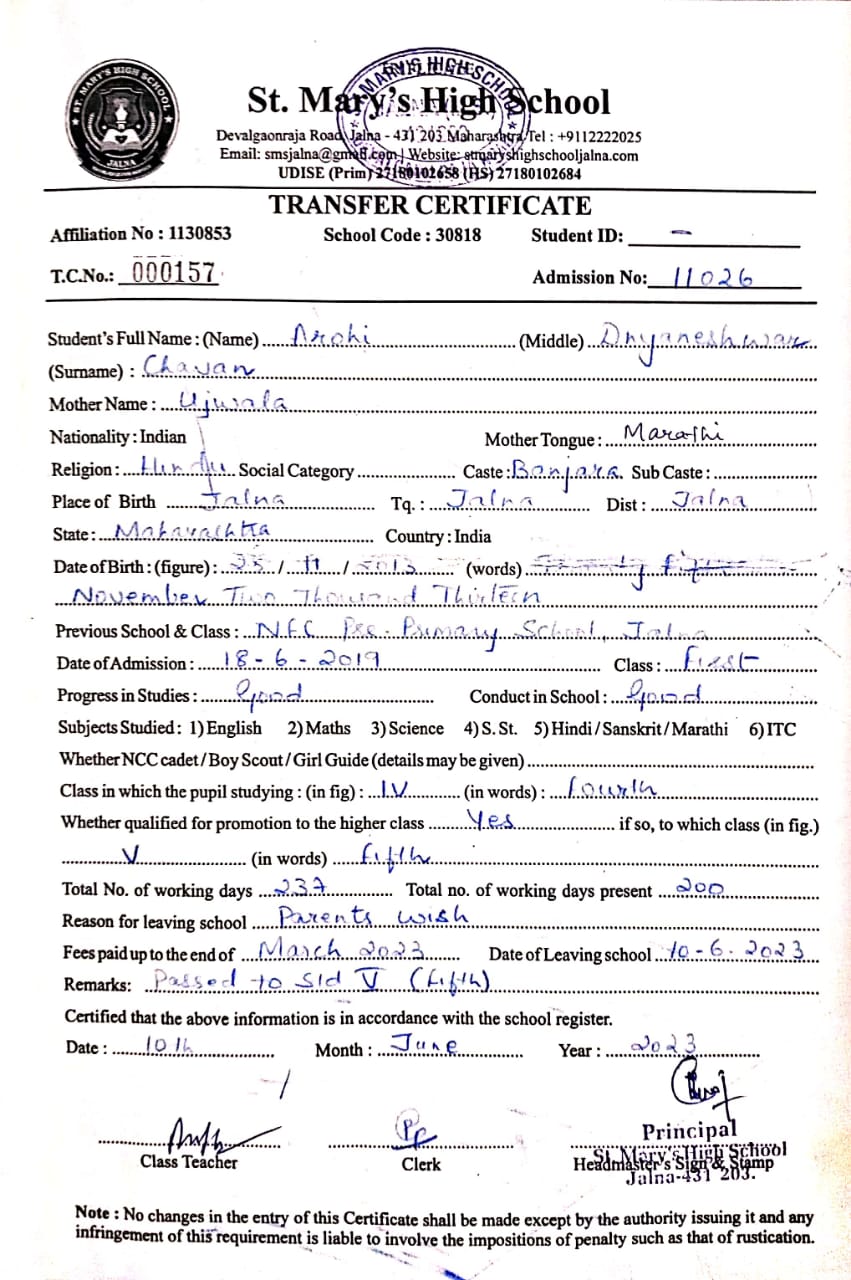 ST. MARY'S HIGH SCHOOL
JALNA
St. Mary's High School
Devalgaonraja Road, Jalna - 431 203 Maharashtra Tel : +9112222025
Email: smsjalna@gmail.com | Website: stmaryshighschooljalna.com
UDISE (Prim) 27180102658 (HS) 27180102684
TRANSFER CERTIFICATE
Affiliation No : 1130853 School Code : 30818 Student ID: –
T.C.No.: 000157 Admission No: 11026
Student's Full Name : (Name) Arohi (Middle) Dnyaneshwar
(Surname) : Chavan
Mother Name : Ujwala
Nationality : Indian Mother Tongue : Marathi
Religion : Hindu Social Category Caste : Banjara Sub Caste :
Place of Birth Jalna Tq. : Jalna Dist : Jalna
State : Maharashtra Country : India
Date of Birth : (figure) : 25 / 11 / 2013 (words) Twenty fifth
November Two Thousand Thirteen
Previous School & Class : NFC Pre-Primary School, Jalna
Date of Admission : 18-6-2019 Class : First
Progress in Studies : Good Conduct in School : Good
Subjects Studied : 1) English 2) Maths 3) Science 4) S. St. 5) Hindi / Sanskrit / Marathi 6) ITC
Whether NCC cadet / Boy Scout / Girl Guide (details may be given)
Class in which the pupil studying : (in fig) : IV (in words) : Fourth
Whether qualified for promotion to the higher class Yes if so, to which class (in fig.)
V (in words) Fifth
Total No. of working days 237 Total no. of working days present 200
Reason for leaving school Parents wish
Fees paid up to the end of March 2023 Date of Leaving school 10-6-2023
Remarks: Passed to Std V (Fifth)
Certified that the above information is in accordance with the school register.
Date : 10th Month : June Year : 2023
Principal
St. Mary's High School
Jalna-431 203.
Class Teacher Clerk Headmaster's Sign & Stamp
Note : No changes in the entry of this Certificate shall be made except by the authority issuing it and any
infringement of this requirement is liable to involve the impositions of penalty such as that of rustication.